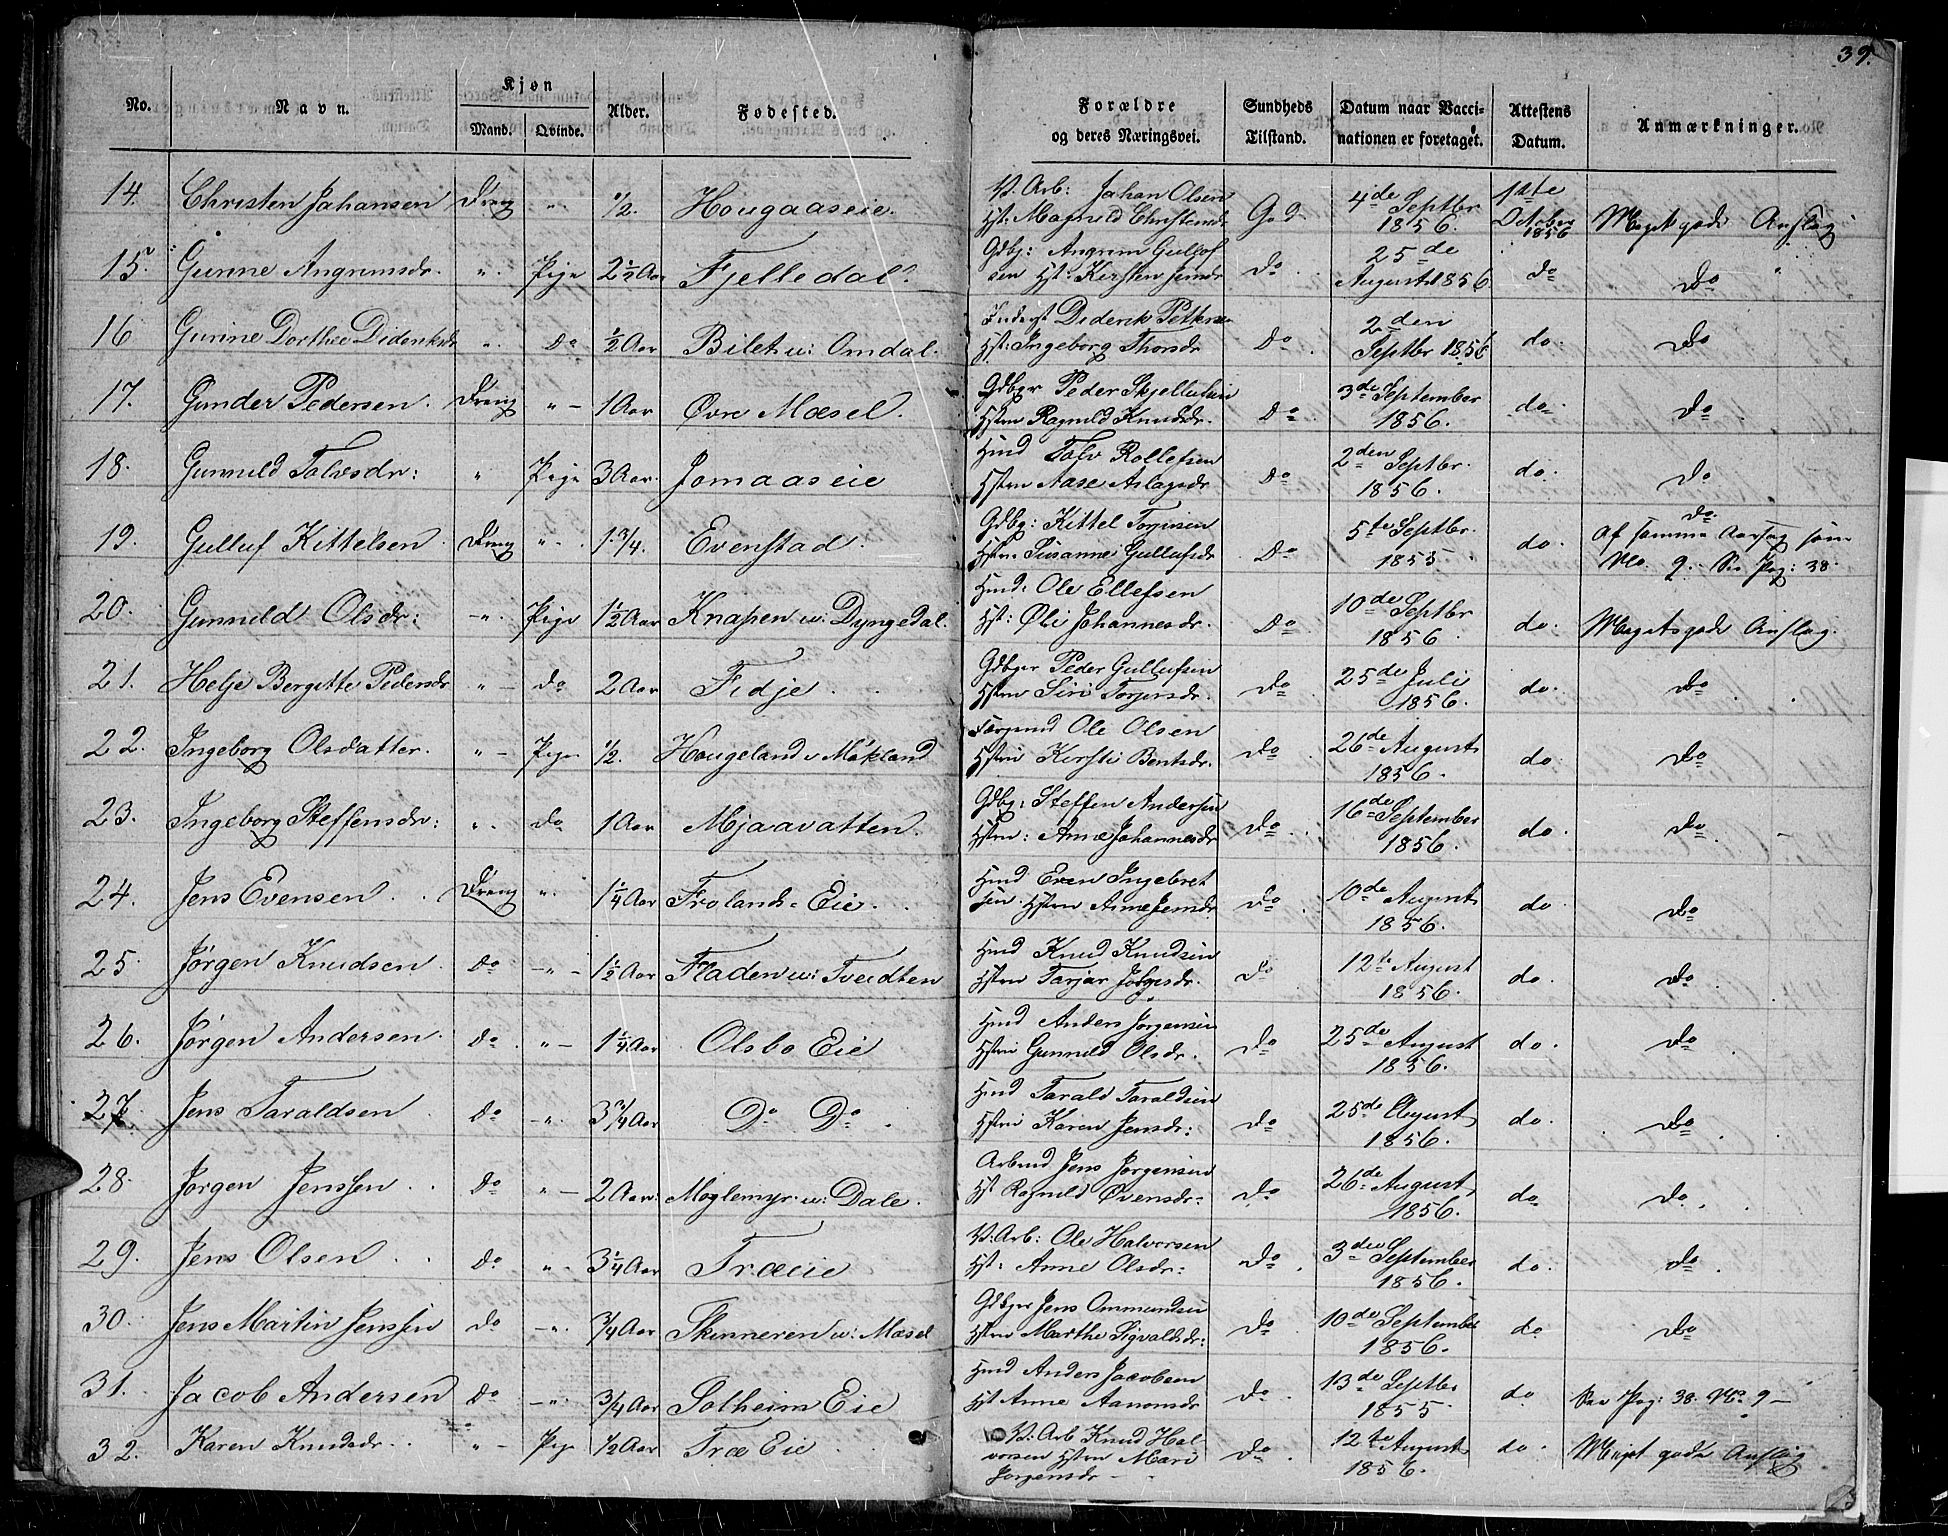 39.
No. Navn. Kjøn Mand. Qvinde. Alder. Fødested. Forældre og deres Næringsvei. Sundheds Tilstand. Datum naar Vaccinationen er foretaget. Attestens Datum. Anmærkninger.
14. Christen Johansen Dreng " 1/2. Hougaaseie. V. Arb: Johan Olsen Hst: Magnild Christensdr God 4de Septbr 1856. 1ste October 1856 Meget gode Anslag
15. Gunne Angrimsdr. " Pige 2 1/2 Aar Fjelledal. Gdbg: Angrim Gullof sen Hst: Kirsten Jensdr Do 25de August 1856 do Do
16 Gurine Dorthee Dideriksdr " Do 1/2 Aar Bilet u: Omdal. Inderst Diderik Pettersen Hst: Ingeborg Thorsdr Do 2den Septbr 1856 do. Do
17. Gunder Pedersen. Dreng " 1 Aar Øvre Mæsel. Gdbgr Peder Skjellulsen Hstru Ragnild Knudsdr. Do 3de September 1856. do Do
18. Gunnild Talvsdr: " Pige 3 Aar. Jomaaseie Hmd Talv Rollefsen Hstru Aase Aslagsdr Do 2den Septbr. 1856. do. Do
19. Gulluf Kittelsen. Dreng " 1 3/4. Evenstad. Gdbg: Kittel Torjusen Hstru Susanne Gullufsdr Do 5te Septbr. 1855 do. Do Af samme Aarsag som No. 9. See Pag: 38.
20. Gunnild Olsdr: " Pige 1 1/2 Aar Knapen u. Dyngedal. Hmd: Ole Ellefsen Hst: Øli Johannesdr. Do 10de Septbr 1856 do. Meget gode Anslag.
21. Helje Bergitte Pedersdr " Do 2 Aar Fidje. Gdbgr Peder Gullufsen Hstru Siri Torjersdr. Do 25de Juli 1856. do. Do
22. Ingeborg Olsdatter. " Pige 1/2. Hougeland u Måkland Ole Olsen Hstru Kirsti Bentsdr. Do 26de August 1856. do. Do
23. Ingeborg Steffensdr: " do 1 Aar Mjaavatten. Gdbg: Steffen Andersen Hstru: Anne Johannesdr Do 16de September 1856. do. Do
24. Jens Evensen. Dreng " 1 1/4 Aar Frolands-Eie. Hmd Even Ingebret sen Hstru Anne Jensdr Do 10de August 1856. do. Do
25 Jørgen Knudsen. Do " 1 1/2 Aar Fladen u: Tvedten Hmd Knud Knudsen Hstru Tarjar Jørgesdr. Do 12te August 1856. do. Do
26. Jørgen Andersen. Do " 1 1/4 Aar Olsbo Eie Hmd Anders Jørgensen Hstru Gunnild Olsdr. Do 25de August 1856. do. Do
27. Jens Taraldsen Do " 3 3/4 Aar Do Do Hmd Tarald Taraldsen Hstru Karen Jensdr: Do 25de August 1856. do. Do
28. Jørgen Jenssen Do " 2 Aar. Moglemyr u: Dale. Arbmd Jens Jørgensen Hst Ragnild Øvensdr: Do 26de August 1856. do Do
29. Jens Olsen Do " 3 1/4 Aar Træeie V: Arb: Ole Halvorsen Hst: Anne Olsdr: Do 3die September 1856. do. Do
30. Jens Martin Jenssen Do " 3/4 Aar Skinneren u: Mæsel Gdbgr Jens Ommundsen Hstru Marthe Sigvaldsdr: Do 10de September 1856. do Do
31. Jacob Andersen Do " 3/4 Aar Solheim Eie Hmd Anders Jacobsen Hst Anne Aanonsdr Do 13de Septbr 1855 do See Pag: 38. No. 9
32. Karen Knudsdr. " Pige 1/2 Aar Træ Eie V: Arb Knud Hal- vorsen Hstru Mari Jørgensdr Do 12te August 1856. do. Meget gode Anslag